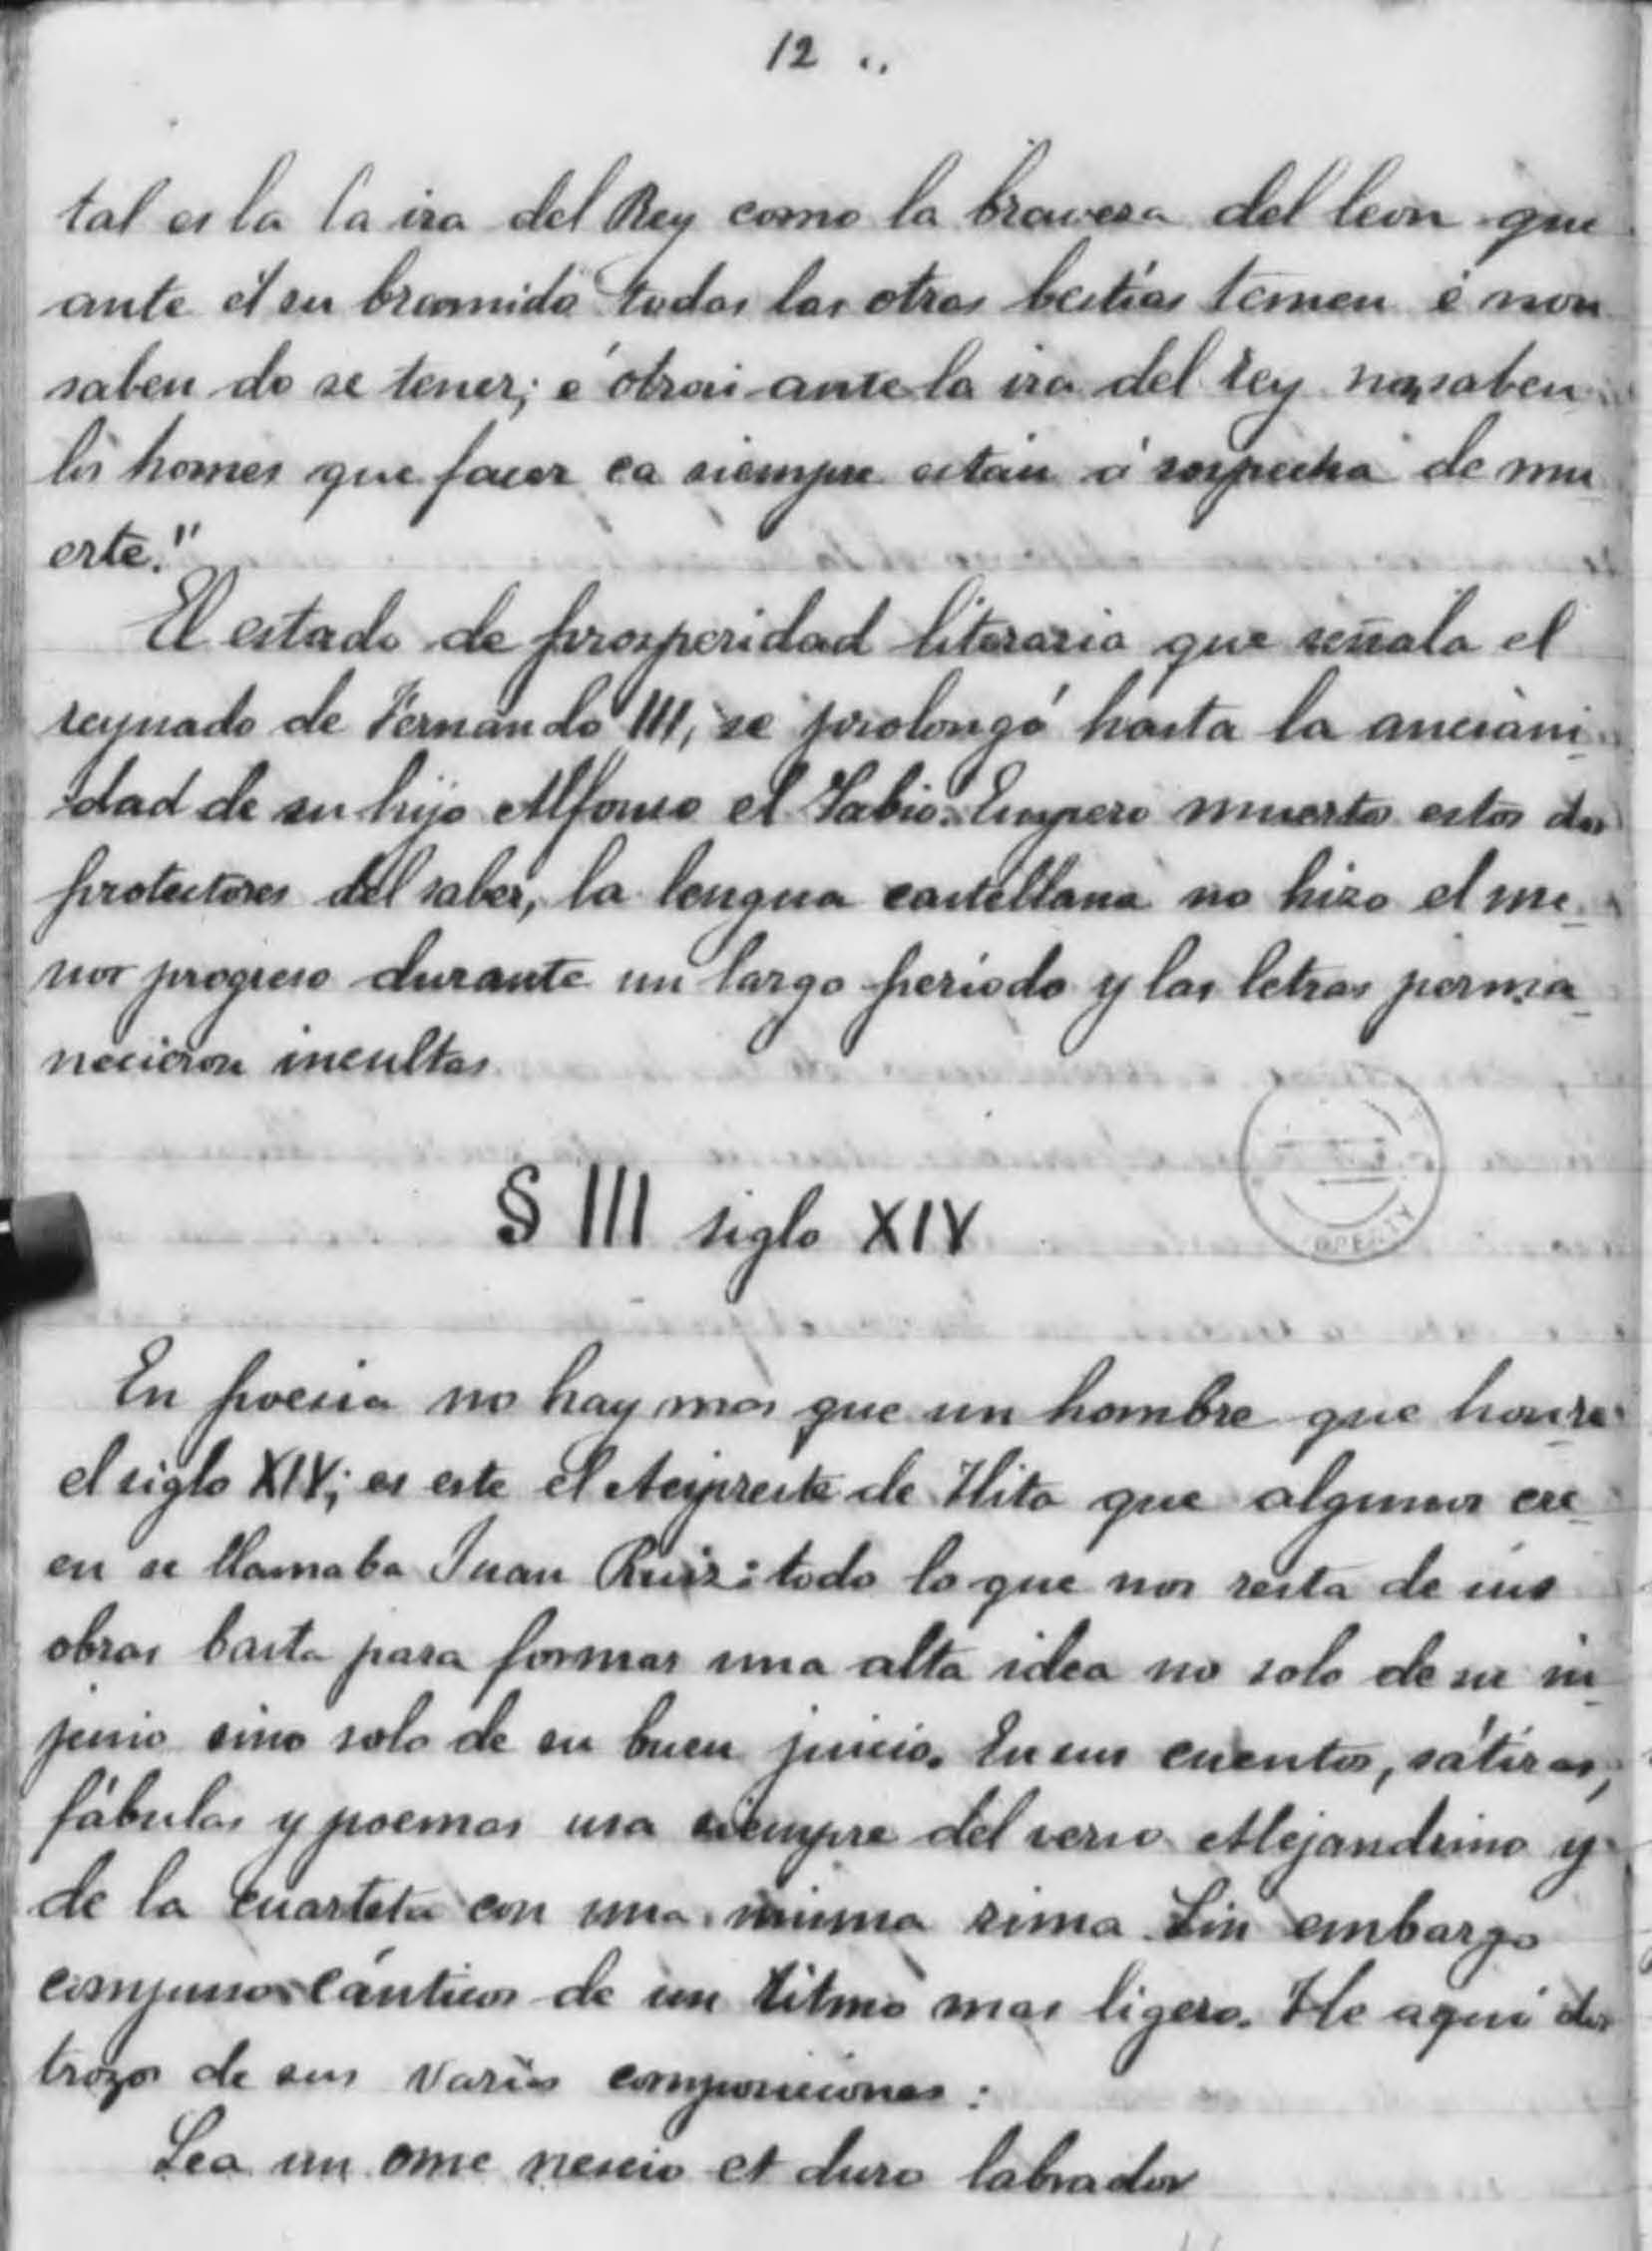 12 ..
tal es la la ira del Rey como la braveza del leon que
ante el su bramido todas las otras bestias temen é non
saben do se tener; é otrosi ante la ira del rey non saben
los homes que facer ca siempre están á sospecha de mu
erte."
El estado de prosperidad literaria que señala el
reynado de Fernando III, se prolongó hasta la anciani
dad de su hijo Alfonso el Sabio. Empero muertos estos dos
protectores del saber, la lengua castellana no hizo el me_
nor progreso durante un largo periodo y las letras perma_
necieron incultas
§ III siglo XIV
En poesia no hay mas que un hombre que honre
el siglo XIV; es este el Acipreste de Hita que algunos cre_
en se llamaba Juan Ruiz: todo lo que nos resta de sus
obras basta para formar una alta idea no solo de su in_
jenio sino solo de su buen juicio. En sus cuentos, sátiras,
fábulas y poemas usa siempre del verso Alejandrino y
de la cuarteta con una misma rima Sin embargo
compuso cánticos de un ritmo mas ligero. He aqui dos
trozos de sus varias composiciones:
Sea un ome nescio et duro labrador